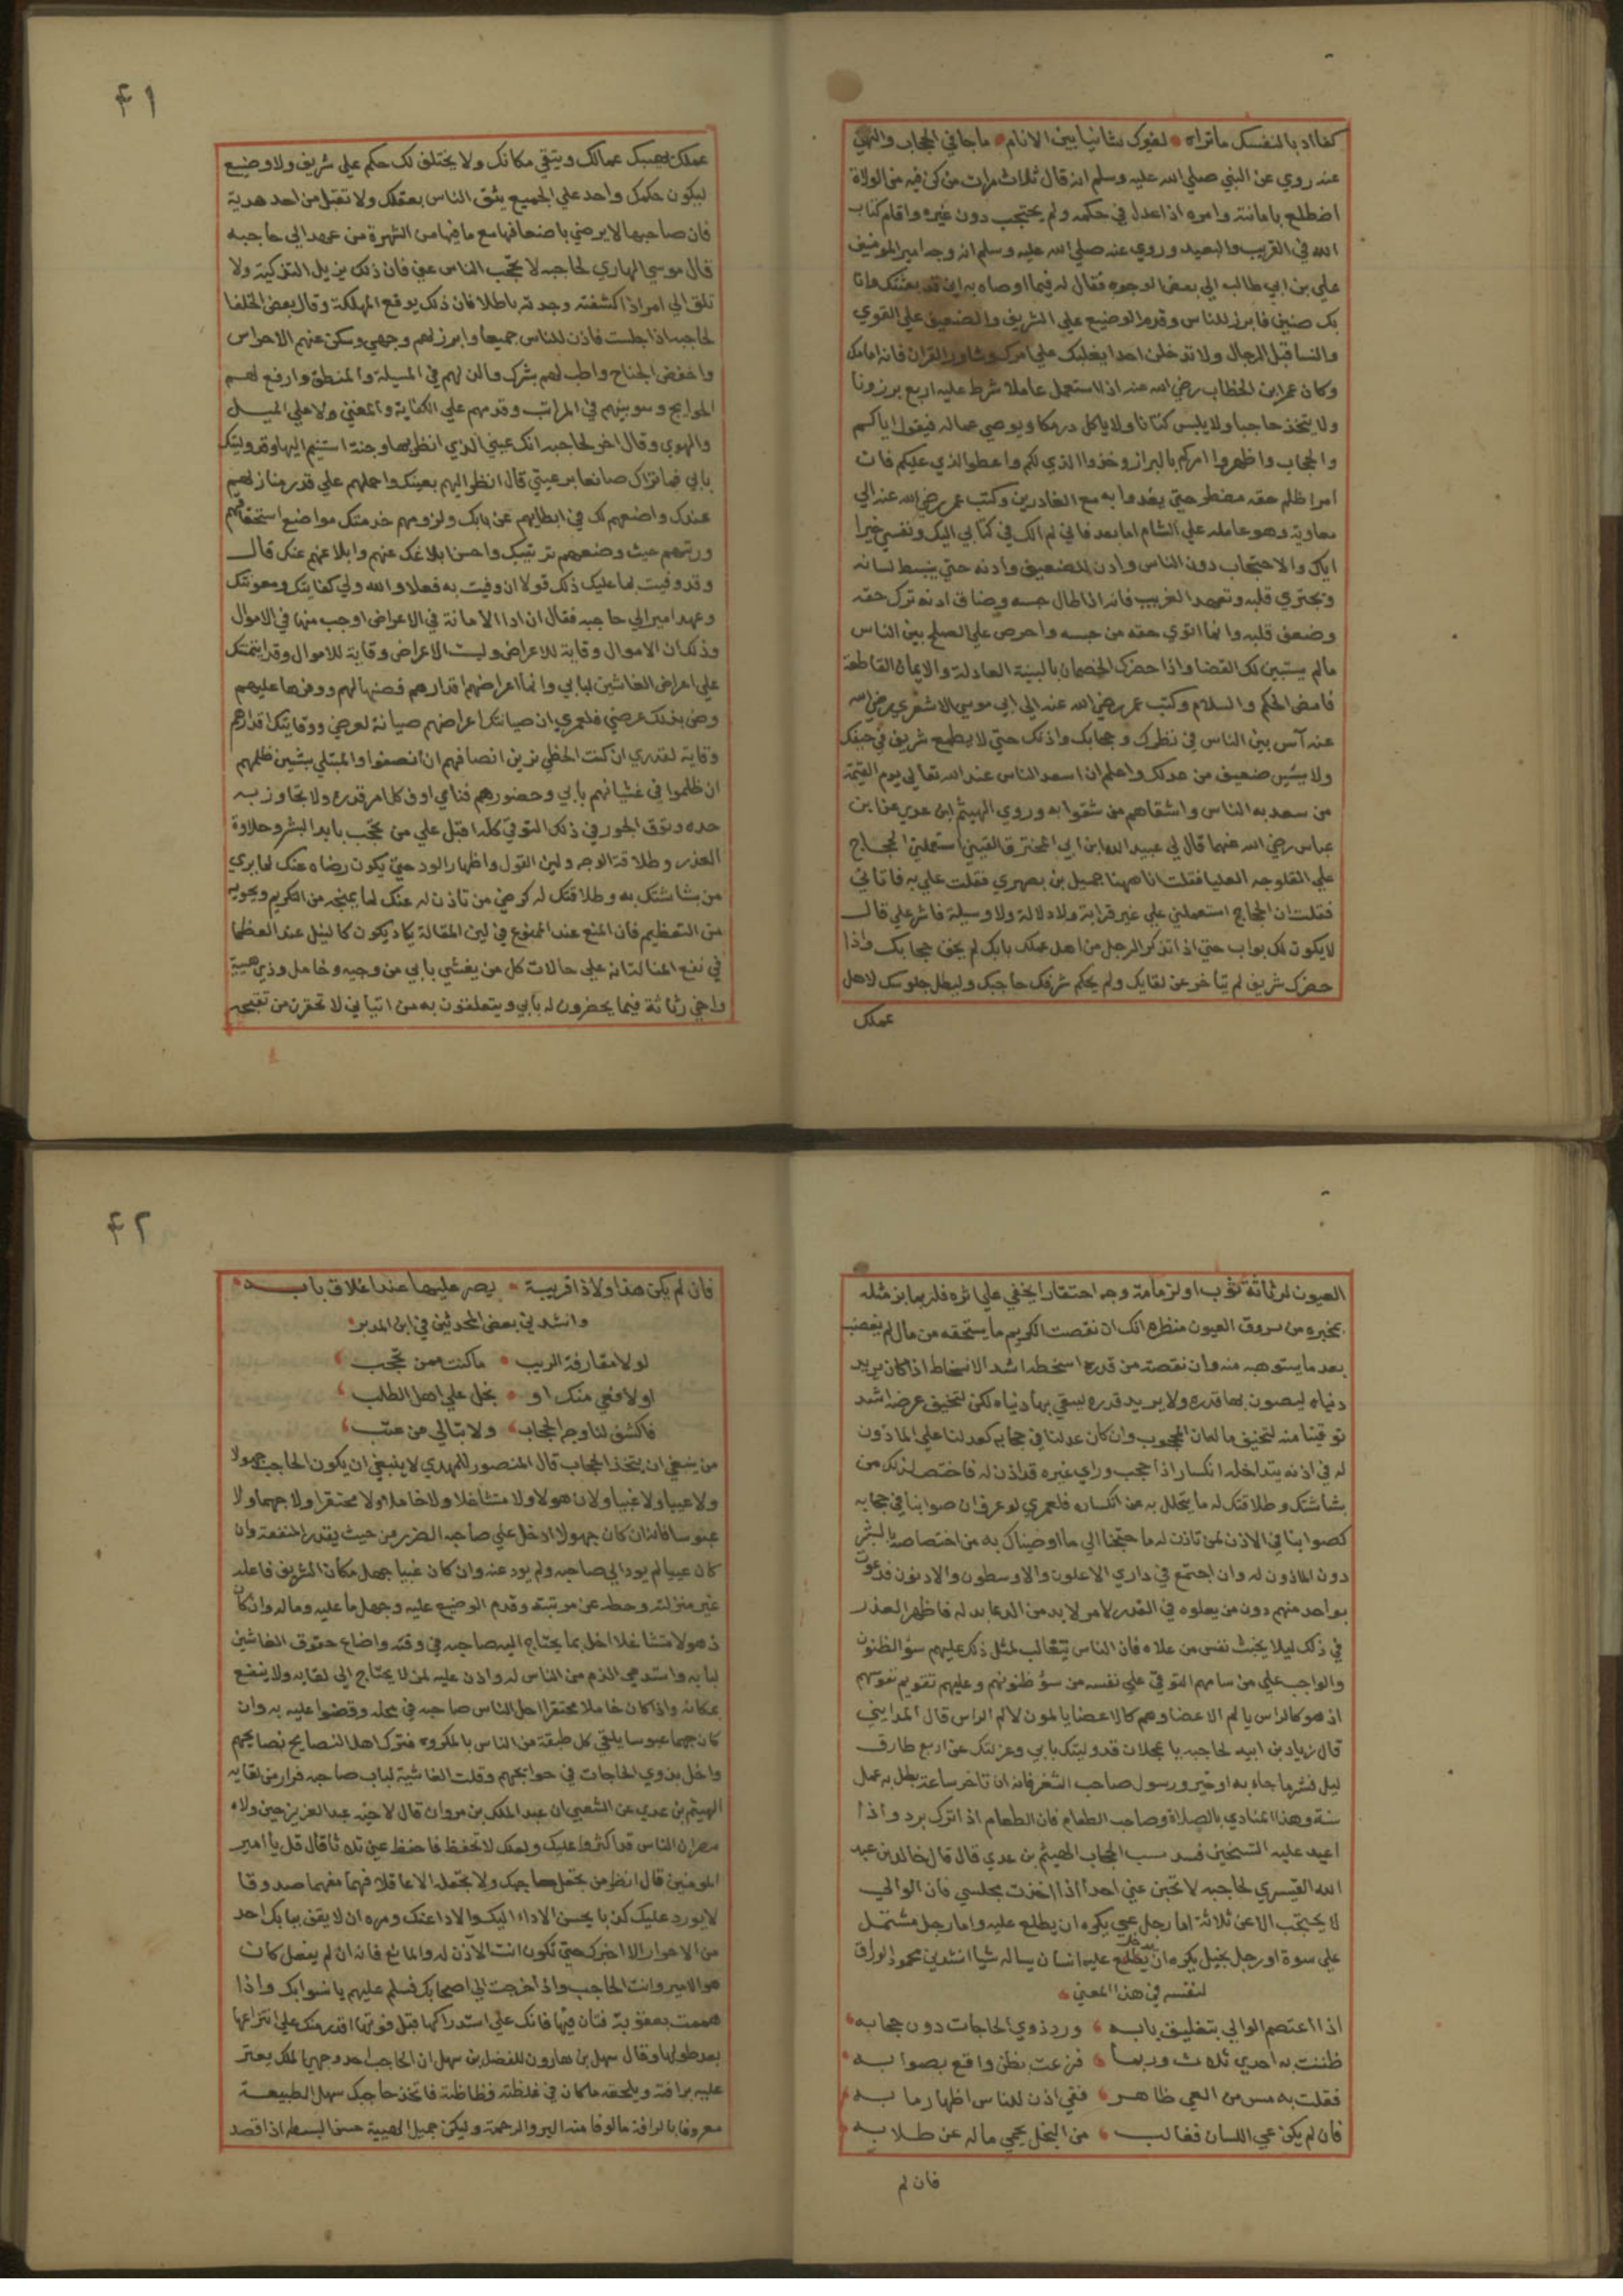 كفاا دبا لنفسك ماتراه لغيرك شانيا بين الانام ماجا في الحجاب والنهي
عنه روي عن النبي صلي الله عليه وسلم انه قال ثلاث مرات من كن فيه من الولاة
اضطلع بامانته وامره اذا عدل في حكمه ولم يحتجب دون غيره واقام كتاب
الله في القريب والبعيد وروي عنه صلي الله عليه وسلم انه وجه امير المومنين
علي بن ابي طالب الي بعض الوجوه فقال له فيما اوصاه به اني قد بعثتك وانا
بك ضنين فابرز للناس وقدم الوضيع علي الشريف والضعيف علي القوي
والنسا قبل الرجال ولا تدخلن احدا يغلبك علي امرك وشاور القران فانه امامك
وكان عمر ابن الخطاب رضي الله عنه اذا استعمل عاملا شرط عليه اربع برزونا
ولا يتخذ حاجبا ولا يلبس كتانا ولا ياكل درمكا ويوصي عماله فيقول اياكم
والحجاب واظهروا امركم بالبراز وخذوا الذي لكم واعطوا الذي عليكم فان
امرا ظلم حقه مضطر حتي يغدوا به مع الغادرين وكتب عمر رضي الله عنه الي
معاوية وهو عامله علي الشام اما بعد فاني لم الك في كتابي اليك ونفسي خيرا
اياك والاحتجاب دون الناس وادن للضعيف وادنه حتي ينبسط لسانه
ويجتري قلبه وتعهد الغريب فانه اذا طال حبسه وضاق ادنه ترك حقه
وضعف قلبه وانما اتوي حقه من حبسه واحرص علي الصلح بين الناس
مالم يستبين لك القضا واذا حضرك الخصمان بالبينة العادلة والايمان القاطعة
فامض الحكم والسلام وكتب عمر رضي الله عنه الي ابي موسي الاشعري رضي الله
عنه آس بين الناس في نظرك وحجابك واذنك حتي لا يطمع شريف في حيفك
ولا يئيس ضعيف من عدلك واعلم ان اسعد الناس عند الله تعالي يوم القيمة
من سعد به الناس واشقاهم من شقوا به وروي الهيثم ابن عدي عن ابن
عباس رضي الله عنهما قال لي عبيد الله ابن ابي المخترق القيني استعملني الحجاج
علي الفلوجه العليا فقلت اما ههنا جميل بن بصهري فقلت علي به فاتاني
فقلت ان الحجاج استعملني علي غير قرابة ولا دلالة ولا وسيلة فاشر علي قال
لا يكون لك بواب حتي اذا تذكر الرجل من اهل عملك بابك لم يخف حجابك واذا
حضرك شريف لم يتاخر عن لقايك ولم يحكم شرفك حاجبك وليطل جلوسك لاهل
عملك
٤١
عملك يهيبك عمالك ويتقي مكانك ولا يختلف لك حكم علي شريف ولا وضيع
ليكون حكمك واحد علي الجميع يثق الناس بعقلك ولا تقبل من احد هدية
فان صاحبها لا يرضي باضعافها مع ما فيها من الشهرة من عهد الي حاجبه
قال موسي الهاري لحاجبه لا تحجب الناس عني فان ذلك يزيل التزكية ولا
تلق الي امر اذا كشفته وجدته باطلا فان ذلك يوقع المهلكة وقال بعض الخلفا
لحاجبه اذا جلست فاذن للناس جميعا وابرز لهم وجهي وسكن عنهم الاحراس
واخفض الجناح واطب لهم بشرك والن لهم في المسيلة والمنطق وارفع لهم
الحوايج وسو بينهم في المراتب وقدمهم علي الكفاية والمعني ولا علي الميل
والهوي وقال اخر لحاجبه انك عيني الذي انظر بها وجنة استنيم اليها وقد وليتك
بابي فما تراك صانعا برعيتي قال انظر اليهم بعينك واحملهم علي قدر منازلهم
عندك واضعهم لك في ابطايهم عن بابك ولزومهم خدمتك مواضع استحقاقهم
ورتبهم حيث وضعهم ترتيبك واحسن ابلاغك عنهم وابلاغهم عنك قال
وقد وفيت بما عليك ذلك قولا ان وفيت به فعلا والله ولي كفايتك ومعونتك
وعهد امير الي حاجبه فقال ان ادا الامانة في الاعراض اوجب منها في الاموال
وذلك ان الاموال وقاية للاعراض وليست الاعراض وقاية للاموال وقد ايتمنتك
علي اعراض الغاشين لبابي وانما اعراضهم اقدارهم فصنها لهم ووفرها عليهم
وصن بذلك عرضي فلعمري ان صيانتك اعراضهم صيانة لعرضي ووقايتك اقدارهم
وقاية لقدري ان كنت الحظي بزين انصافهم ان انصفوا والمبتلي بشين ظلمهم
ان ظلموا في غشيانهم بابي وحضورهم فنامي اوف كل امر قدره ولا تجاوز به
حده وتوق الجور في ذلك التوقي كله اقبل علي من تحجب بابد البشر وحلاوة
العذر وطلاقة الوجه ولين القول واظهار الود حتي يكون رضاه عنك لما يري
من بشاشتك به وطلاقتك له كرضي من تاذن له عنك لما يمنحه من التكريم ويحويه
من التعظيم فان المنع عند الممنوع في لين المقالة يكاد يكون كالنيل عند العظما
في نفع المنالتانه علي حالات كل من يغشي بابي من وجيه وخامل وذي هيبة
واخي رثاثة فيما يحضرون له بابي ويتعلقون به من اتياني لا تحقرن من تقتحمه
العيون لرثاثة ثوب او لزمامة وجه احتقارا يخفي علي اثره فلربما بز مثله
بمخبره من يروق العيون منظره انك ان نقصت الكريم ما يستحقه من مال لم يغضب
بعد ما يستوهبه منه وان نقصته من قدره اسخطه اشد الاسخاط اذا كان يريد
دنياه ليصون بها قدره ولا يريد قدره ليبقي بها دنياه لكن لتحيف عرضه اشد
توقيا منه لتحيف ماله ان المحجوب وان كان عدلنا في حجابه كعدلنا علي الماذون
له في اذنه يتداخله انكسار اذا حجب وراي غيره قد اذن له فاختص لذلك من
بشاشتك وطلاقتك له ما يتحلل به عنه انكساره فلعمري لو عرف ان صوابنا في حجابه
كصوابنا في الاذن لمن تاذن له ما حتجنا الي ما اوصيناك به من اختصاصه بالبشر
دون الماذون له وان اجتمع في داري الاعلون والاوسطون والادنون فدعوت
بواحد منهم دون من يعلوه في القدر لامر لابد من الدعا به له فاظهر العذر
في ذلك ليلا يخبث نفس من علاه فان الناس يتغالب لمثل ذلك عليهم سوء الظنون
والواجب علي من سامهم التوقي علي نفسه من سوء ظنونهم وعليهم تقويم نفوسهم
اذ هو كالراس يالم الاعضا وهم كالاعضا يالمون لالم الراس قال المدايني
قال زياد بن ابيه لحاجبه يا عجلان قد وليتك بابي وعزلتك عن اربع طارق
ليل فشر ما جاء به او خير ورسول صاحب الثغر فانه ان تاخر ساعة بطل به عمل
سنة وهذا المنادي بالصلاة وصاحب الطعام فان الطعام اذا ترك برد واذا
اعيد عليه التسخين فسد سبب الحجاب الهيثم بن عدي قال قال خالد بن عبد
الله القيسري لحاجبه لا تحجبن عني احدا اذا اخذت مجلسي فان الوالي
لا يحتجب الا عن ثلاثة اما رجل عيي يكره ان يطلع عليه واما رجل مشتمل
علي سوة او رجل بخيل يكره ان يطلع عليه انسان يساله شيا انشدني محمود الوراق
لنفسه في هذا المعني
اذا اعتصم الوالي بتغليق بابه ورد ذوي الحاجات دون حجابه
ظننت به احدي ثلاث وربما فزعت بظن واقع بصوابه
فقلت به مس من العي ظاهر ففي اذن للناس اظهار ما به
فان لم يكن عي اللسان فغالب من البخل يحمي ماله عن طلابه
فان لم
٤٢
فان لم يكن هذا ولا ذا فريبة يصر عليها عند اغلاق بابه
وانشدني بعض المحدثين في ابن المدبر
لولا مقارفة الريب ما كنت ممن تحجب
اولا فعي منك او بخل علي اهل الطلب
فاكشف لنا وجه الحجاب ولا تبالي من عتب
من ينبغي ان يتخذ الحجاب قال المنصور للمهدي لا ينبغي ان يكون الحاجب جهولا
ولا عييا ولا غبيا ولا ذهولا ولا متشاغلا ولا خاملا ولا محتقرا ولا جهما ولا
عبوسا فانه ان كان جهولا ادخل علي صاحبه الضرر من حيث يقدر المنفعة وان
كان عييا لم يود الي صاحبه ولم يود عنه وان كان غبيا جهل مكان الشريف فاحله
غير منزلته وحطه عن مرتبته وقدم الوضيع عليه وجهل ما عليه وما له وان كان
ذهولا متشاغلا اخل بما يحتاج اليه صاحبه في وقته واضاع حقوق الغاشين
لبابه واستدعي الذم من الناس له واذن عليه لمن لا يحتاج الي لقايه ولا ينتفع
بمكانه واذا كان خاملا محتقرا احل الناس صاحبه في محله وقضوا عليه به وان
كان جهما عبوسا يلتقي كل طبقة من الناس بالمكروه فترك اهل النصايح نصايحهم
واخل بذوي الحاجات في حوايجهم وقلت الغاشية لباب صاحبه فرارا من لقايه
الهيثم بن عدي عن الشعبي ان عبد الملك بن مروان قال لاخيه عبد العزيز حين ولاه
مصر ان الناس قد اكثروا عليك ولعلك لا تحفظ فاحفظ عني ثلاثا قال قل يا امير
المومنين قال انظر من تجعل حاجبك ولا تجعله الا عاقلا فهما مفهما صدوقا
لا يورد عليك كذبا يحسن الاداء اليك والادا عنك ومره ان لا يقف ببابك احد
من الاحرار الا اخبرك حتي تكون انت الآذن له والمانع فانه ان لم يفعل كان
هو الامير وانت الحاجب واذا خرجت الي اصحابك فسلم عليهم يانسوا بك واذا
هممت بعقوبة فتان فيها فانك علي استدراكها قبل فوتها اقدر منك علي انتزاعها
بعد طولها وقال سهل بن هارون للفضل بن سهل ان الحاجب احد وجهي الملك يعتبر
عليه برافته ويلحقه ما كان في غلظته فظاظته فاتخذ حاجبك سهل الطبيعة
معروفا بالرافة مالوفا منه البر والرحمة وليكن جميل الهيبة حسن البسطه اذا قصد